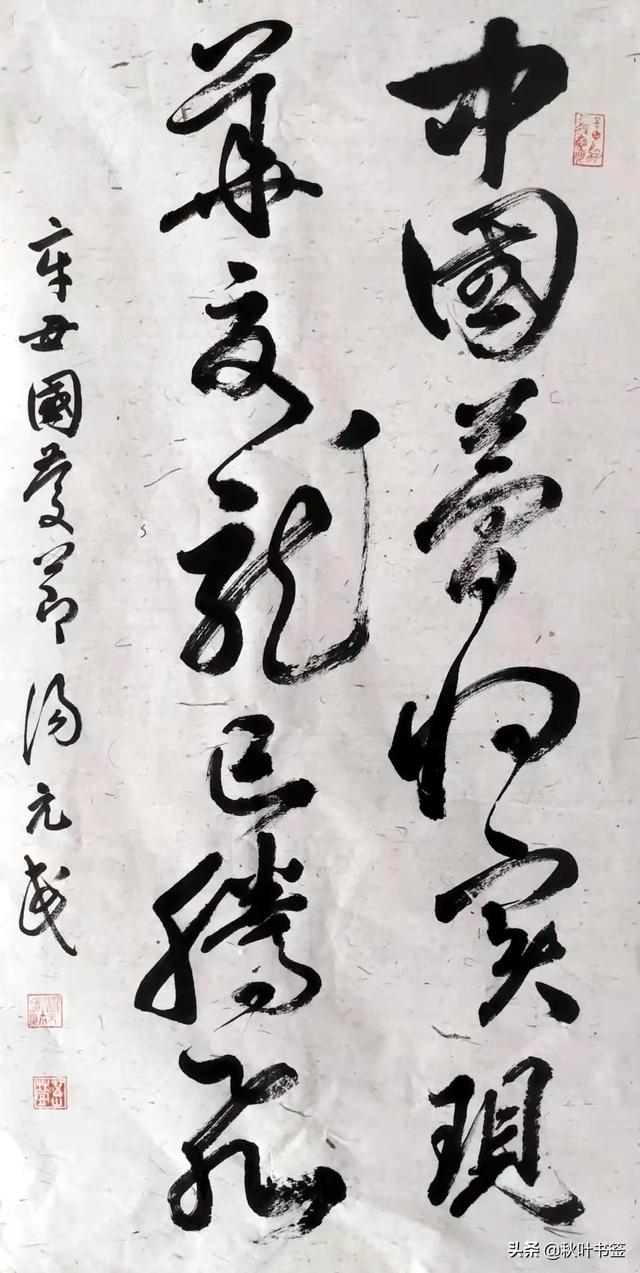 中國夢归实現
華夏龍已騰飛
辛丑國慶節湯元武
头条 @秋叶书签